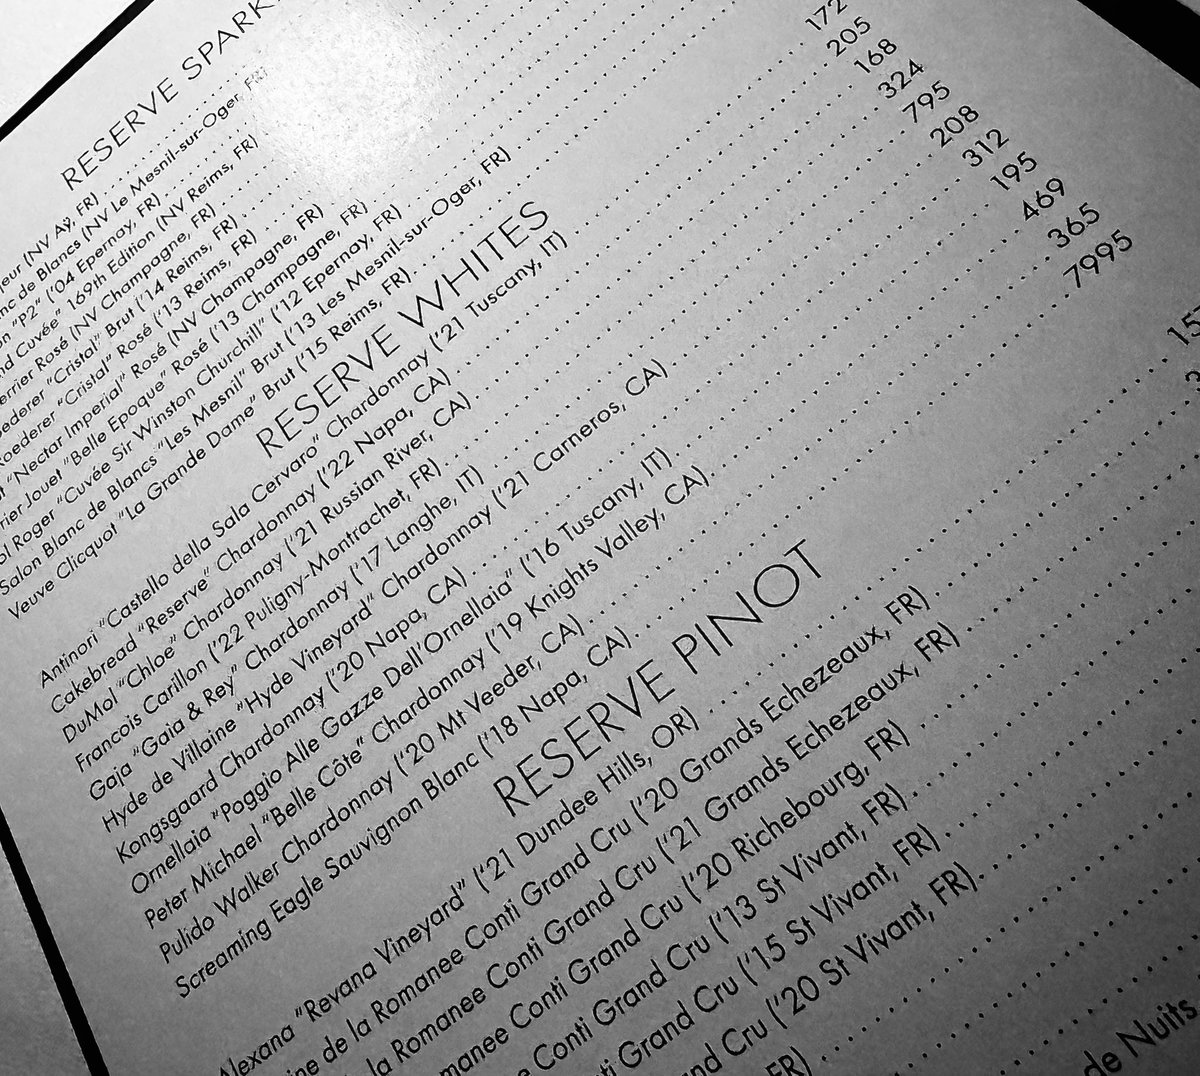 RESERVE SPARK
(NV Aÿ, FR)
de Blancs (NV Le Mesnil-sur-Oger, FR)
"P2" ('04 Epernay, FR)
Cuvée" 169th Edition (NV Reims, FR)
Rosé (NV Champagne, FR)
"Cristal" Brut ('14 Reims, FR)
Roederer "Cristal" Rosé ('13 Reims, FR)
"Nectar Imperial" Rosé (NV Champagne, FR)
Jouet "Belle Epoque" Rosé ('13 Champagne, FR)
Roger "Cuvée Sir Winston Churchill" ('12 Epernay, FR)
Salon Blanc de Blancs "Les Mesnil" Brut ('13 Les Mesnil-sur-Oger, FR)
Veuve Clicquot "La Grande Dame" Brut ('15 Reims, FR)
RESERVE WHITES
Antinori "Castello della Sala Cervaro" Chardonnay ('21 Tuscany, IT) 172
Cakebread "Reserve" Chardonnay ('22 Napa, CA) 205
DuMol "Chloe" Chardonnay ('21 Russian River, CA) 168
Francois Carillon ('22 Puligny-Montrachet, FR) 324
Gaja "Gaia & Rey" Chardonnay ('17 Langhe, IT) 795
Hyde de Villaine "Hyde Vineyard" Chardonnay ('21 Carneros, CA) 208
Kongsgaard Chardonnay ('20 Napa, CA) 312
Ornellaia "Poggio Alle Gazze Dell'Ornellaia" ('16 Tuscany, IT) 195
Peter Michael "Belle Côte" Chardonnay ('19 Knights Valley, CA) 469
Pulido Walker Chardonnay ('20 Mt Veeder, CA) 365
Screaming Eagle Sauvignon Blanc ('18 Napa, CA) 7995
RESERVE PINOT
Alexana "Revana Vineyard" ('21 Dundee Hills, OR)
de la Romanee Conti Grand Cru ('20 Grands Echezeaux, FR)
la Romanee Conti Grand Cru ('21 Grands Echezeaux, FR)
Conti Grand Cru ('20 Richebourg, FR)
Conti Grand Cru ('13 St Vivant, FR)
Grand Cru ('15 St Vivant, FR)
Cru ('20 St Vivant, FR)
FR)
de Nuits